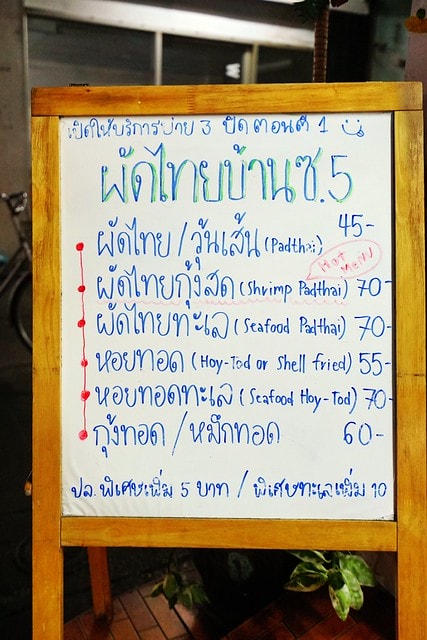 เปิดให้บริการบ่าย 3 ปิดตอนตี 1
ผัดไทยบ้านซ.5
ผัดไทย / วุ้นเส้น (Padthai) 45-
Hot Menu
ผัดไทยกุ้งสด (Shrimp Padthai) 70-
ผัดไทยทะเล (Seafood Padthai) 70-
หอยทอด (Hoy-Tod or Shell fried) 55-
หอยทอดทะเล (Seafood Hoy-Tod) 70-
กุ้งทอด / หมึกทอด 60-
ปล. พิเศษเพิ่ม 5 บาท / พิเศษทะเลเพิ่ม 10